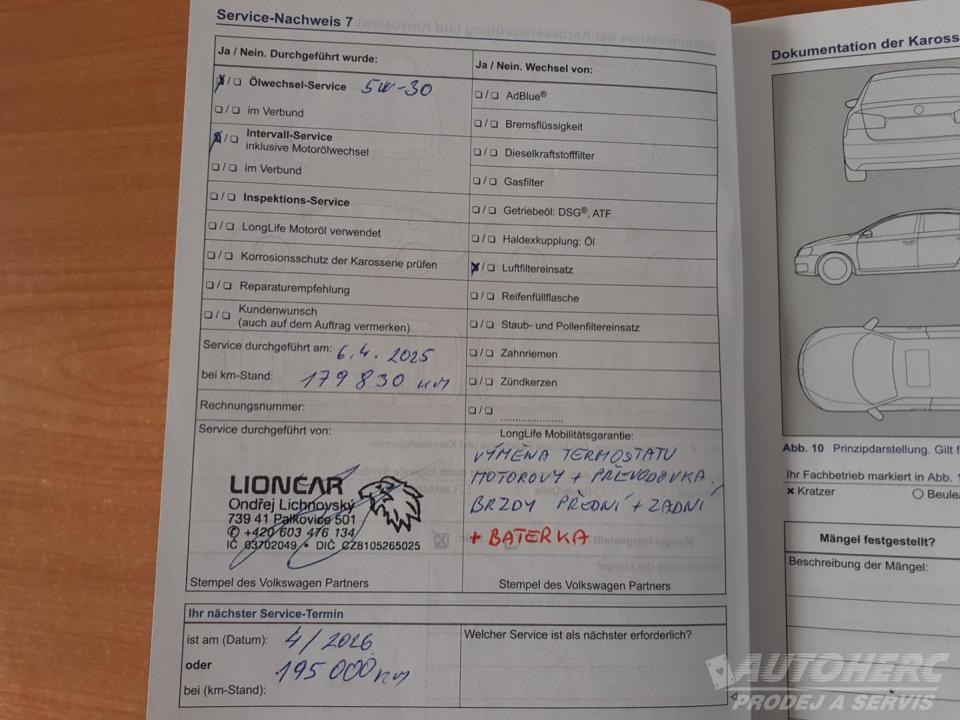 Service-Nachweis 7
Ja / Nein. Durchgeführt wurde:
❏/❏ Ölwechsel-Service 5W-30
❏/❏ im Verbund
❏/❏ Intervall-Service
inklusive Motorölwechsel
❏/❏ im Verbund
❏/❏ Inspektions-Service
❏/❏ LongLife Motoröl verwendet
❏/❏ Korrosionsschutz der Karosserie prüfen
❏/❏ Reparaturempfehlung
❏/❏ Kundenwunsch
(auch auf dem Auftrag vermerken)
Service durchgeführt am: 6.4.2025
bei km-Stand: 179 830 km
Rechnungsnummer:
Service durchgeführt von:
LIONCAR
Ondřej Lichnovský
739 41 Palkovice 501
✆ +420 603 476 134
IČ 03702049 • DIČ CZ8105265025
Stempel des Volkswagen Partners
Ja / Nein. Wechsel von:
❏/❏ AdBlue®
❏/❏ Bremsflüssigkeit
❏/❏ Dieselkraftstofffilter
❏/❏ Gasfilter
❏/❏ Getriebeöl: DSG®, ATF
❏/❏ Haldexkupplung: Öl
❏/❏ Luftfiltereinsatz
❏/❏ Reifenfüllflasche
❏/❏ Staub- und Pollenfiltereinsatz
❏/❏ Zahnriemen
❏/❏ Zündkerzen
❏/❏ ....................
LongLife Mobilitätsgarantie:
VÝMĚNA TERMOSTATU
MOTOROVÝ + PŘEVODOVKA.
BRZDY PŘEDNÍ + ZADNÍ
+ BATERKA
Stempel des Volkswagen Partners
Ihr nächster Service-Termin
ist am (Datum): 4/2026
oder
195 000 km
bei (km-Stand):
Welcher Service ist als nächster erforderlich?
Dokumentation der Kaross
Abb. 10 Prinzipdarstellung. Gilt f
Ihr Fachbetrieb markiert in Abb. 1
× Kratzer ○ Beule
Mängel festgestellt?
Beschreibung der Mängel:
AUTOHERC
PRODEJ A SERVIS